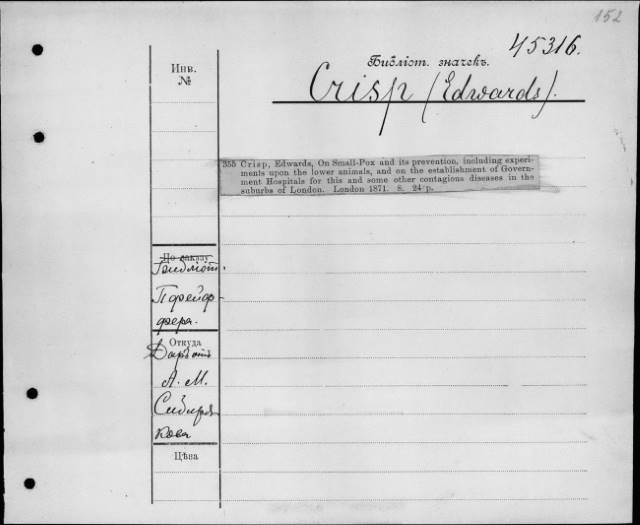 152
45316.
Инв.
№
Библіот. значекъ.
Crisp (Edwards).
355 Crisp, Edwards, On Small-Pox and its prevention, including experi-
ments upon the lower animals, and on the establishment of Govern-
ment Hospitals for this and some other contagious diseases in the
suburbs of London. London 1871. 8. 24 p.
По заказу
Библіот.
Пфейф-
фера.
Откуда
Даръ отъ
А. М.
Сибиря
кова
Цѣна